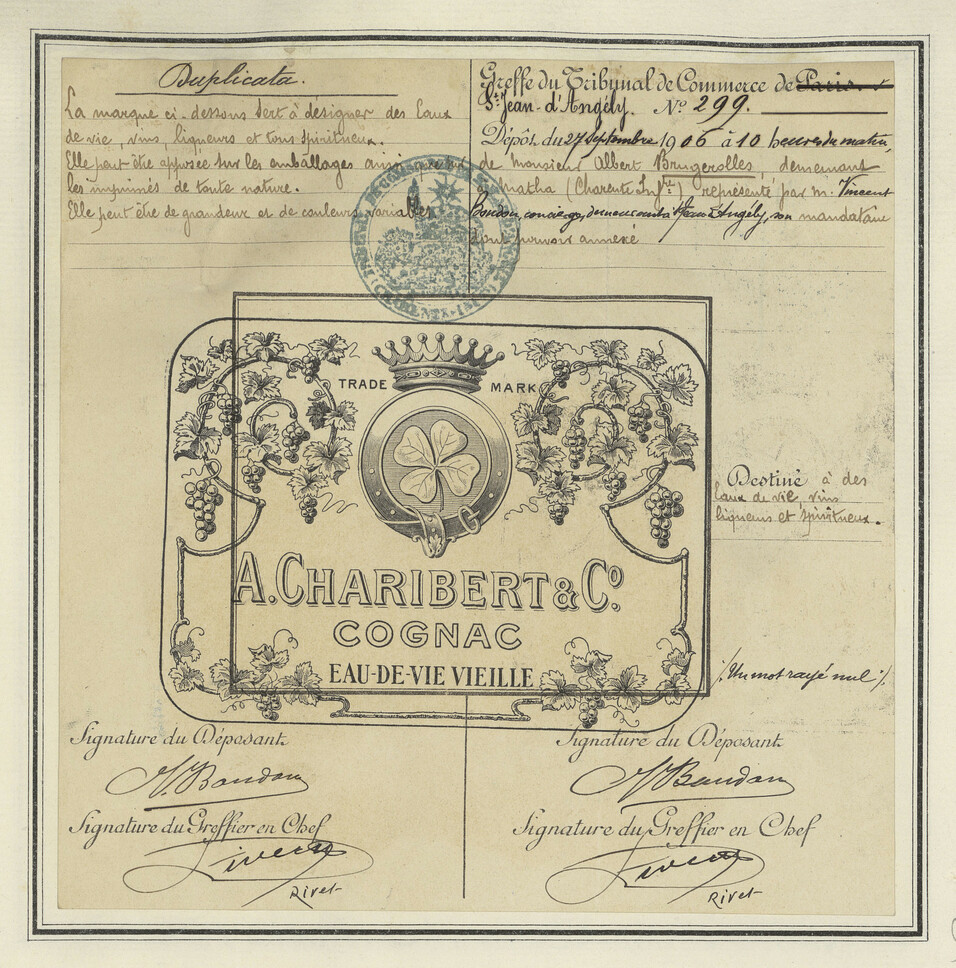 Duplicata.
La marque ci-dessous sert à désigner des Eaux
de vie, vins, liqueurs et tous spiritueux.
Elle peut être apposée sur les emballages ainsi que sur
les imprimés de toute nature.
Elle peut être de grandeur et de couleurs variables
Greffe du Tribunal de Commerce de Paris.
St Jean-d'Angély. No 299.
Dépôt du 27 Septembre 1906 à 10 heures du matin,
de Monsieur Albert Brugerolles, demeurant
à Matha (Charente Infre) représenté par M. Vincent
Boudou, concierge, demeurant à St Jean d'Angély, son mandataire
dont pouvoir annexé
TRADE MARK
A. CHARIBERT & Co.
COGNAC
EAU-DE-VIE VIEILLE
Destiné à des
Eaux de vie, vins
liqueurs et spiritueux.
/. Un mot rayé nul /.
Signature du Déposant
Signature du Déposant
Signature du Greffier en Chef
Signature du Greffier en Chef
Rivet
Rivet